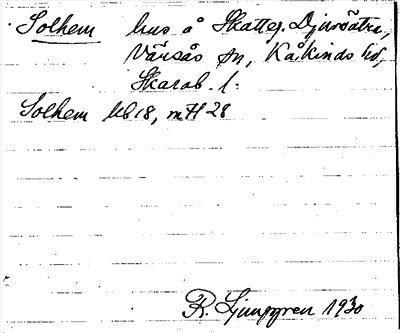 Solhem hus å Skattej. Djursätra,
Värsås sn, Kåkinds hd,
Skarab. l.
Solhem kb 18, mH 28
R. Ljunggren 1930